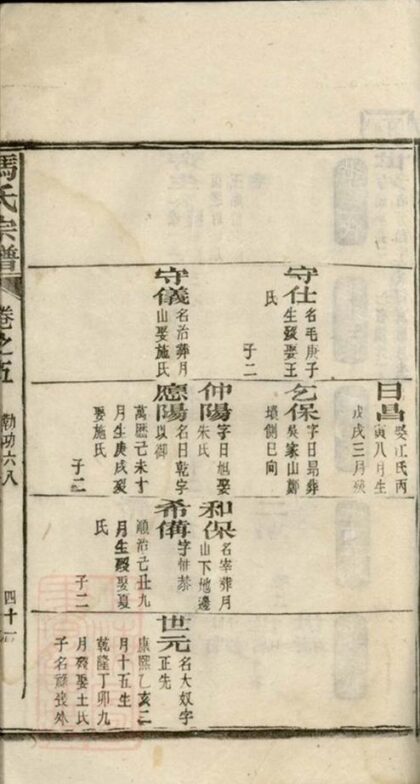 馮氏宗譜
卷之五
勅功六八
四十一
守仕
名毛庚子
生發娶王
氏
子二
守儀
名治葬月
山娶施氏
日昌
娶江氏丙
寅八月生
戊戌三月歿
乞保
字日昂葬
吳家山鄭
壞側巳向
仲陽
字日旭娶
朱氏
應陽
名日乾字
以御
萬曆己未十
月生庚戌發
娶施氏
子二
和保
名宰葬月
山下地邊
希備
字世恭
順治己丑九
月生歿娶夏
氏
子二
世元
名大奴字
正先
康熙乙亥二
月十五生
乾隆丁卯九
月發娶王氏